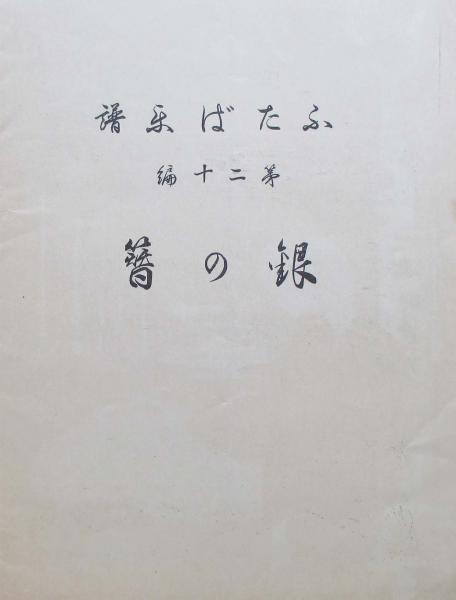 ふたば楽譜
第二十編
銀の簪